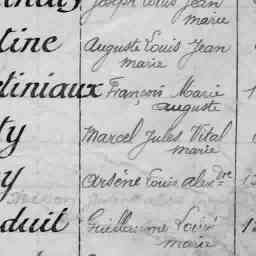 Joseph Louis Jean
marie
tine Auguste Louis Jean
marie
tiniaux François Marie
auguste
ty Marcel Jules Vital
marie
y Arsène Louis alexdre
duit Guillaume Louis
marie